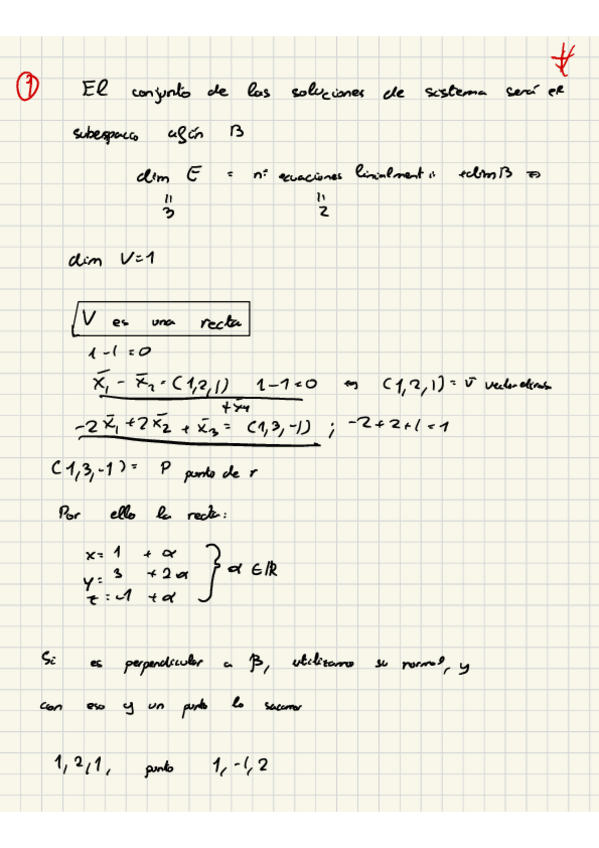 1 El conjunto de las soluciones de sistema será el
subespacio afín B
dim E = nº ecuaciones + dim B ⇒
=
3
=
2
dim V=1
V es una recta
1-1=0
x̄₁ - x̄₂ = (1,2,1) 1-1=0 ⇒ (1,2,1) = v̄
+x̄₄
-2x̄₁+2x̄₂ + x̄₃ = (1,3,-1) ; -2+2+1=1
(1,3,-1) = P punto de r
Por ello la recta:
x= 1 + α
y= 3 +2α } α ∈ ℝ
z=-1 +α
Si es perpendicular a B, utilizamos su normal, y
con eso y un punto lo sacamos
1,2,1, punto 1,-1,2